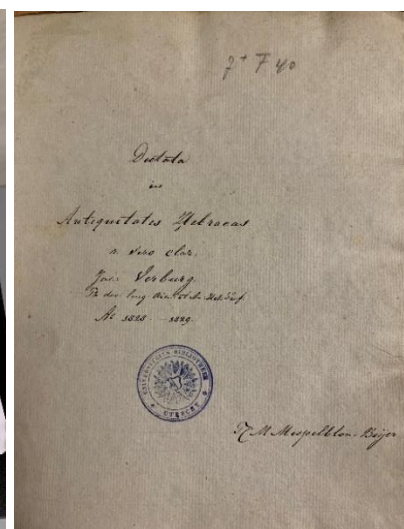 7+ F 40
Dictata
in
Antiquitates Hebraeas
a viro clar.
Verburg
Ao 1828 – 1829.
UNIVERSITEITS BIBLIOTHEEK
UTRECHT
M Mespelblom-Beijer